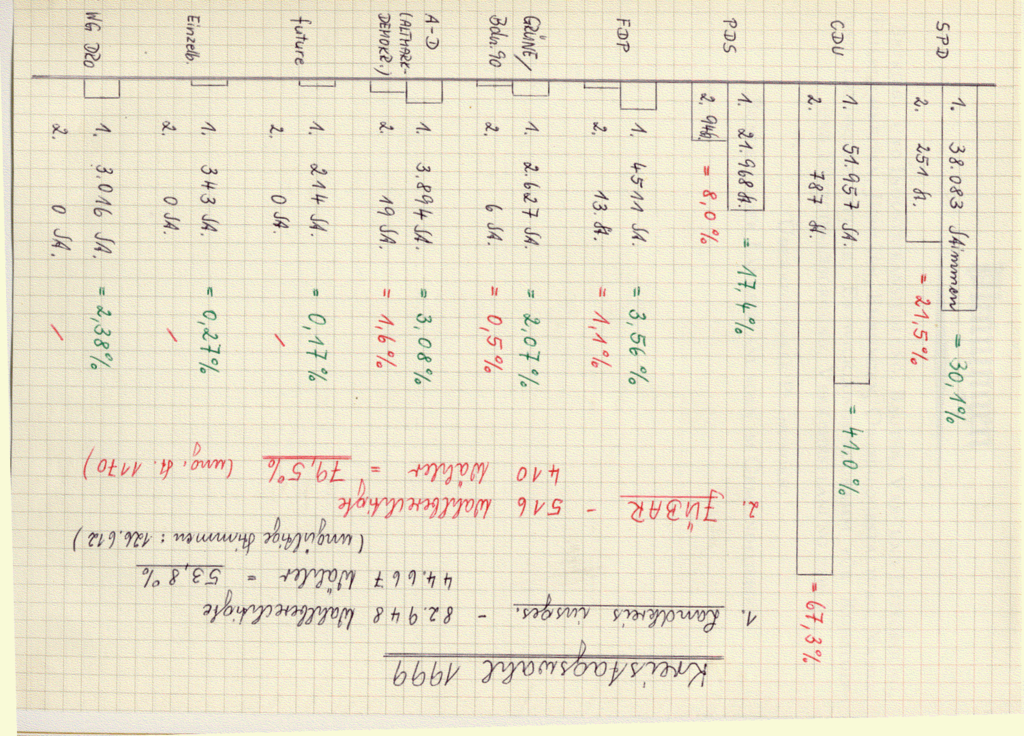 Kreistagswahl 1999
1. Landkreis insges. - 82.948 Wahlberechtigte
44.667 Wähler = 53,8%
(ungültige Stimmen : 126.612)
2. JÜBAR - 516 Wahlberechtigte
410 Wähler = 79,5% (ung. St. 1170)
SPD
1. 38.083 Stimmen = 30,1%
2. 251 St. = 21,5%
CDU
1. 51.957 St. = 41,0%
2. 787 St = 67,3%
PDS
1. 21.968 St. = 17,4%
2. 94 St. = 8,0%
FDP
1. 4511 St. = 3,56%
2. 13. St. = 1,1%
GRÜNE/
Bdn.90
1. 2.627 St. = 2,07%
2. 6 St. = 0,5%
A-D
(ALTMARK-
DEMOKR.)
1. 3.894 St. = 3,08%
2. 19 St. = 1,6%
future
1. 214 St. = 0,17%
2. 0 St. /
Einzelb.
1. 343 St. = 0,27%
2. 0 St. /
WG DRO
1. 3.016 St. = 2,38%
2. 0 St. /